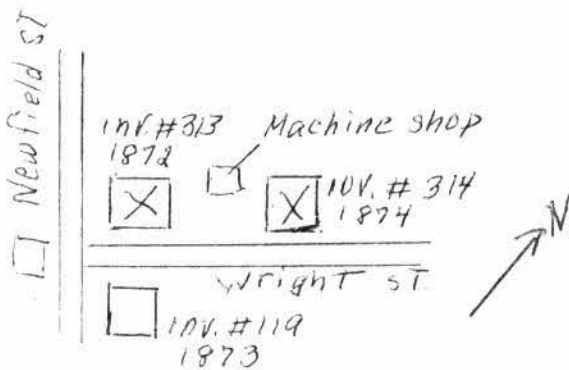 Newfield ST
inv. #313
1872
Machine shop
X
X
INV. # 314
1874
Wright ST
N
inv. #119
1873